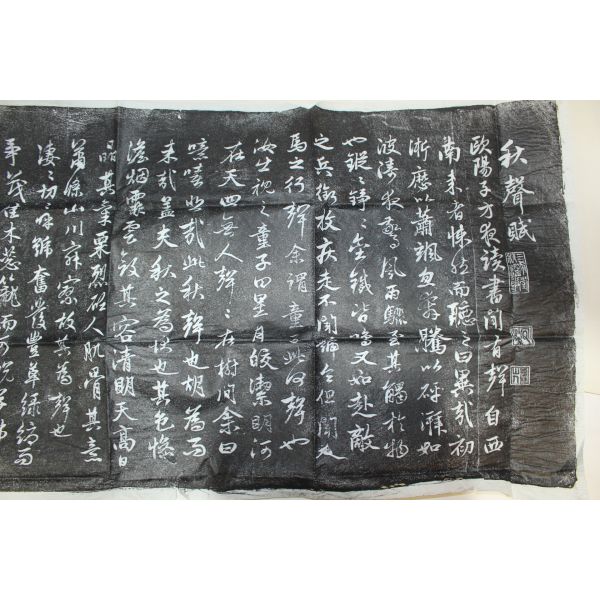 秋聲賦
歐陽子方夜讀書聞有聲自西
南來者悚然而聽之曰異哉初
淅瀝以蕭颯忽奔騰以砰湃如
波濤夜驚風雨驟至其觸於物
也鏦〻錚〻金鐵皆鳴又如赴敵
之兵銜枚疾走不聞號令但聞人
馬之行聲余謂童子此何聲也
汝出視之童子曰星月皎潔明河
在天四無人聲〻在樹間余曰
噫嘻悲哉此秋聲也胡為而
來哉蓋夫秋之為狀也其色慘
澹烟霏雲斂其容清明天高日
晶其氣栗烈砭人肌骨其意
蕭條山川寂寥故其為聲也
淒〻切〻呼號奮發豐草綠縟而
爭茂佳木葱籠而可悅草拂